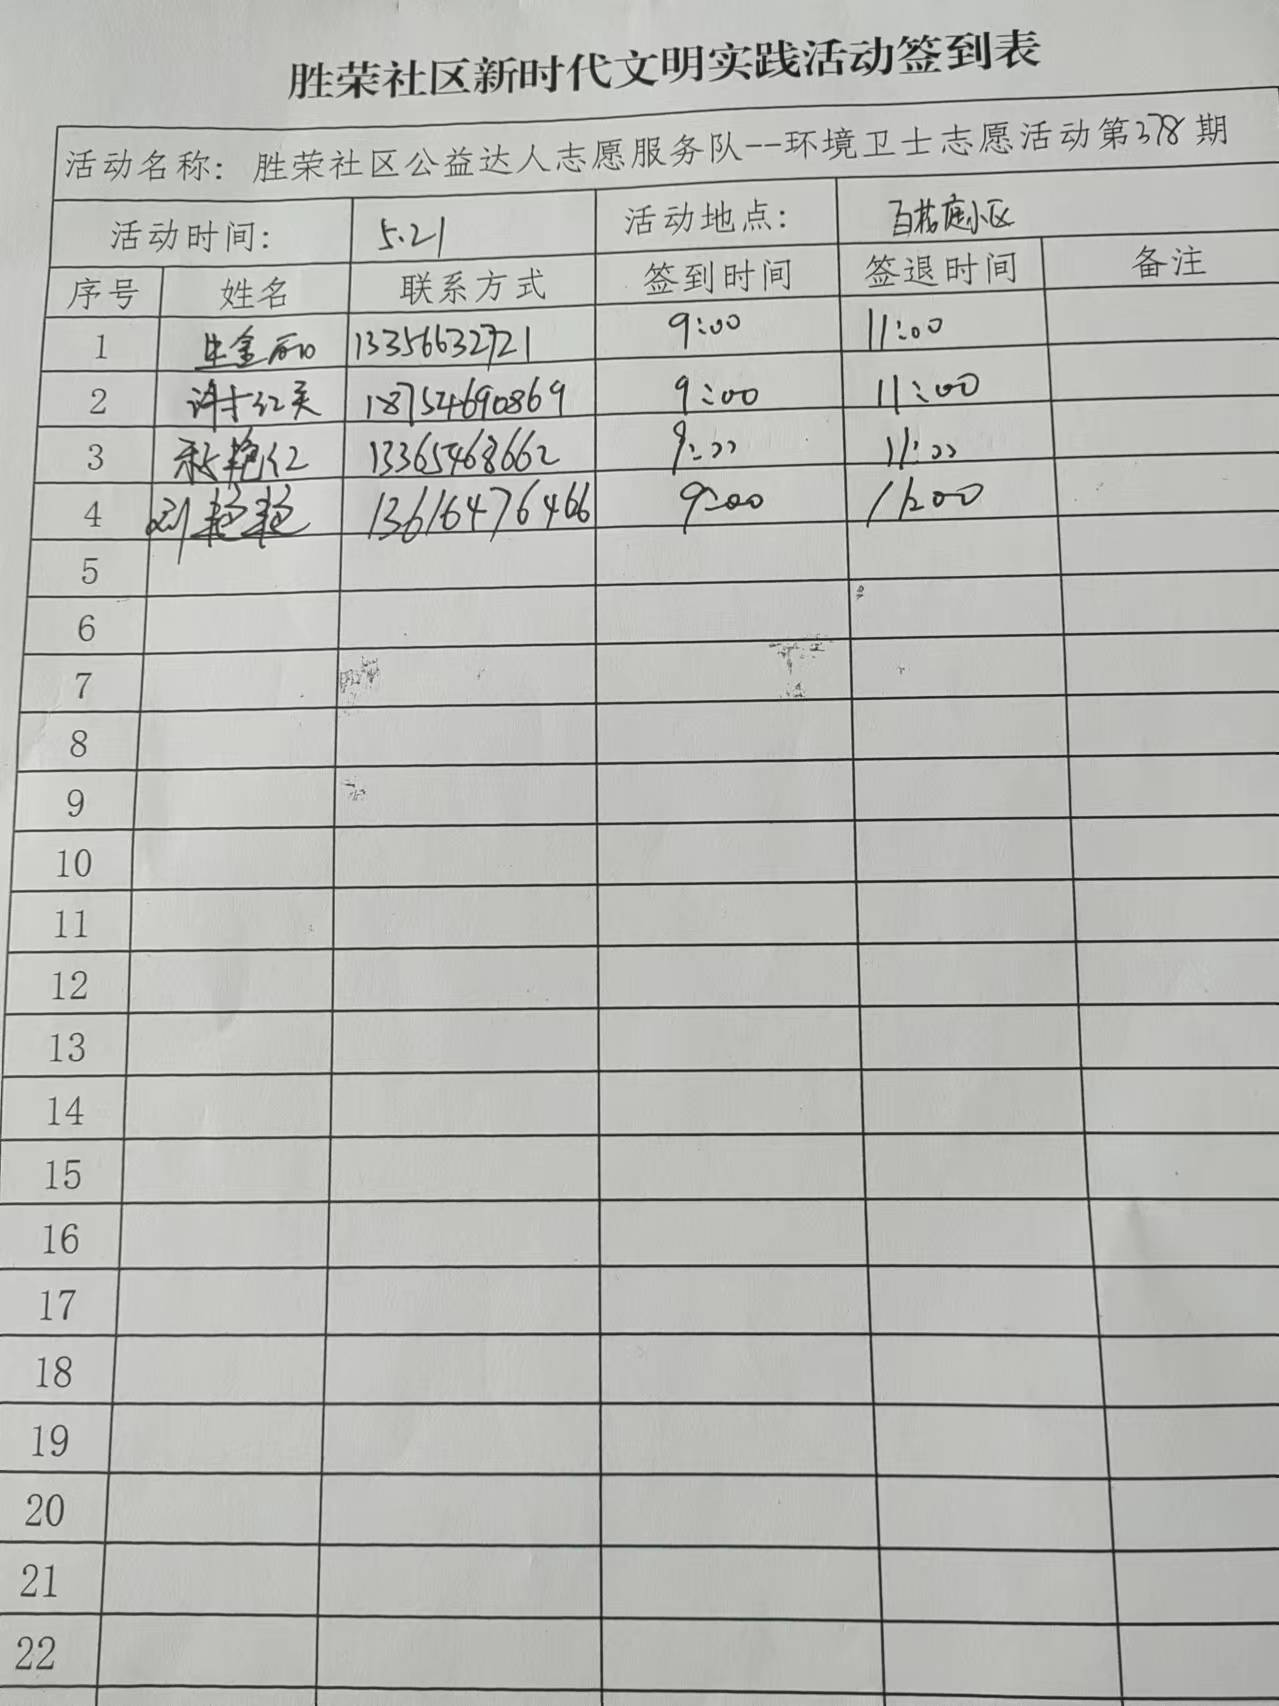 胜荣社区新时代文明实践活动签到表
活动名称：胜荣社区公益达人志愿服务队--环境卫士志愿活动第378期
活动时间： 5.21 活动地点： 百花庭小区
序号 姓名 联系方式 签到时间 签退时间 备注
1 13356632721 9:00 11:00
2 许红英 18754690869 9:00 11:00
3 艳红 13365468662 9:00 11:00
4 刘艳艳 13616476466 9:00 11:00
5
6
7
8
9
10
11
12
13
14
15
16
17
18
19
20
21
22